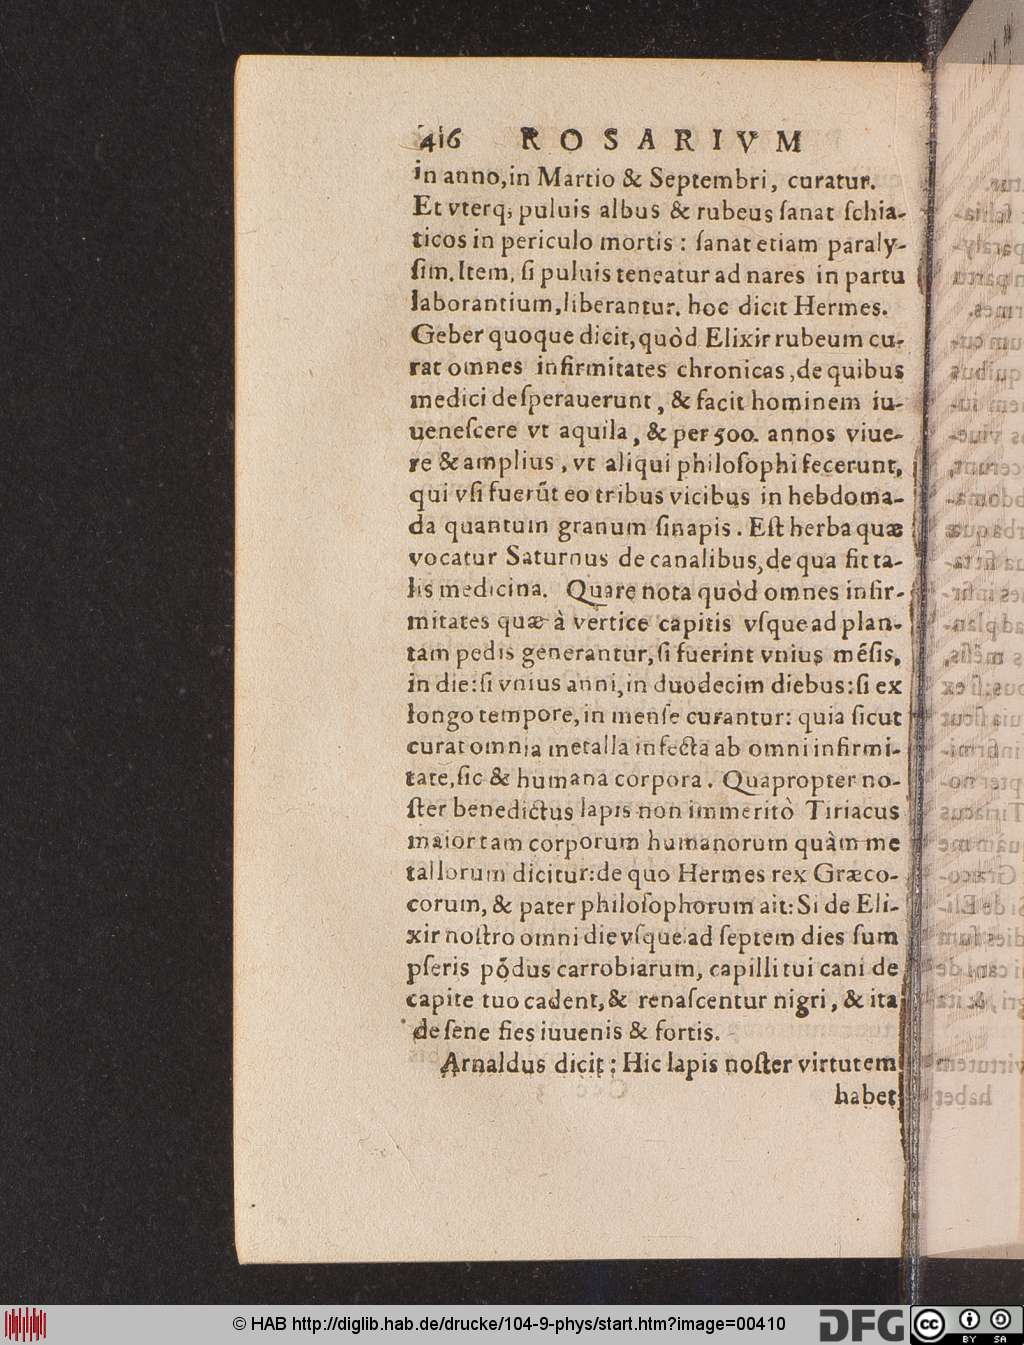 416 ROSARIVM
in anno, in Martio & Septembri, curatur.
Et vterq; puluis albus & rubeus ſanat ſchia-
ticos in periculo mortis: ſanat etiam paraly-
ſim. Item, ſi puluis teneatur ad nares in partu
laborantium, liberantur. hoc dicit Hermes.
Geber quoque dicit, quòd Elixir rubeum cu-
rat omnes infirmitates chronicas, de quibus
medici deſperauerunt, & facit hominem iu-
ueneſcere vt aquila, & per 500. annos viue-
re & amplius, vt aliqui philoſophi fecerunt,
qui vſi fuerūt eo tribus vicibus in hebdoma-
da quantum granum ſinapis. Eſt herba quæ
vocatur Saturnus de canalibus, de qua fit ta-
lis medicina. Quare nota quòd omnes infir-
mitates quæ à vertice capitis vſque ad plan-
tam pedis generantur, ſi fuerint vnius mēſis,
in die: ſi vnius anni, in duodecim diebus: ſi ex
longo tempore, in menſe curantur: quia ſicut
curat omnia metalla infecta ab omni infirmi-
tate, ſic & humana corpora. Quapropter no-
ſter benedictus lapis non immeritò Tiriacus
maior tam corporum humanorum quàm me
tallorum dicitur: de quo Hermes rex Græco-
corum, & pater philoſophorum ait: Si de Eli-
xir noſtro omni die vſque ad ſeptem dies ſum
pſeris pōdus carrobiarum, capilli tui cani de
capite tuo cadent, & renaſcentur nigri, & ita
de ſene fies iuuenis & fortis.
Arnaldus dicit: Hic lapis noſter virtutem
habet
© HAB http://diglib.hab.de/drucke/104-9-phys/start.htm?image=00410
DFG
cc BY SA